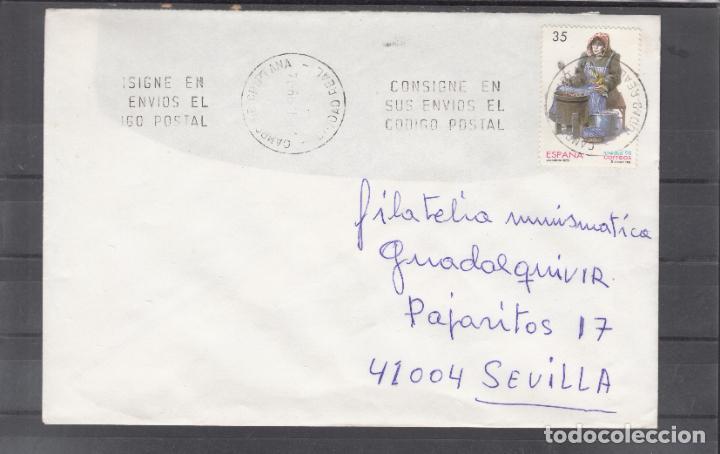 ISIGNE EN
ENVIOS EL
IGO POSTAL
CAMPO DE CRIPTANA
CIUDAD REAL
CONSIGNE EN
SUS ENVIOS EL
CODIGO POSTAL
35
ESPAÑA
CORREOS
filatelia numismatica
Guadalquivir
Pajaritos 17
41004 SEVILLA
todocoleccion